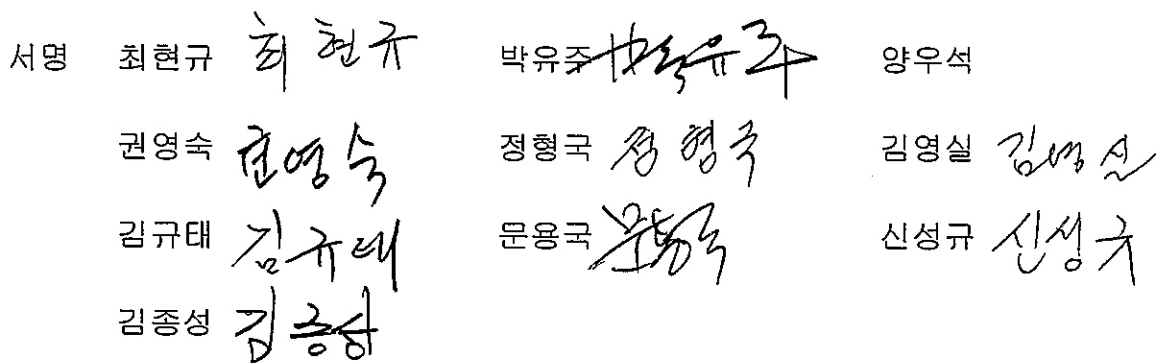 서명 최현규 최현규 박유주 박유주 양우석
권영숙 권영숙 정형국 정형국 김영실 김영실
김규태 김규태 문용국 문용국 신성규 신성규
김종성 김종성